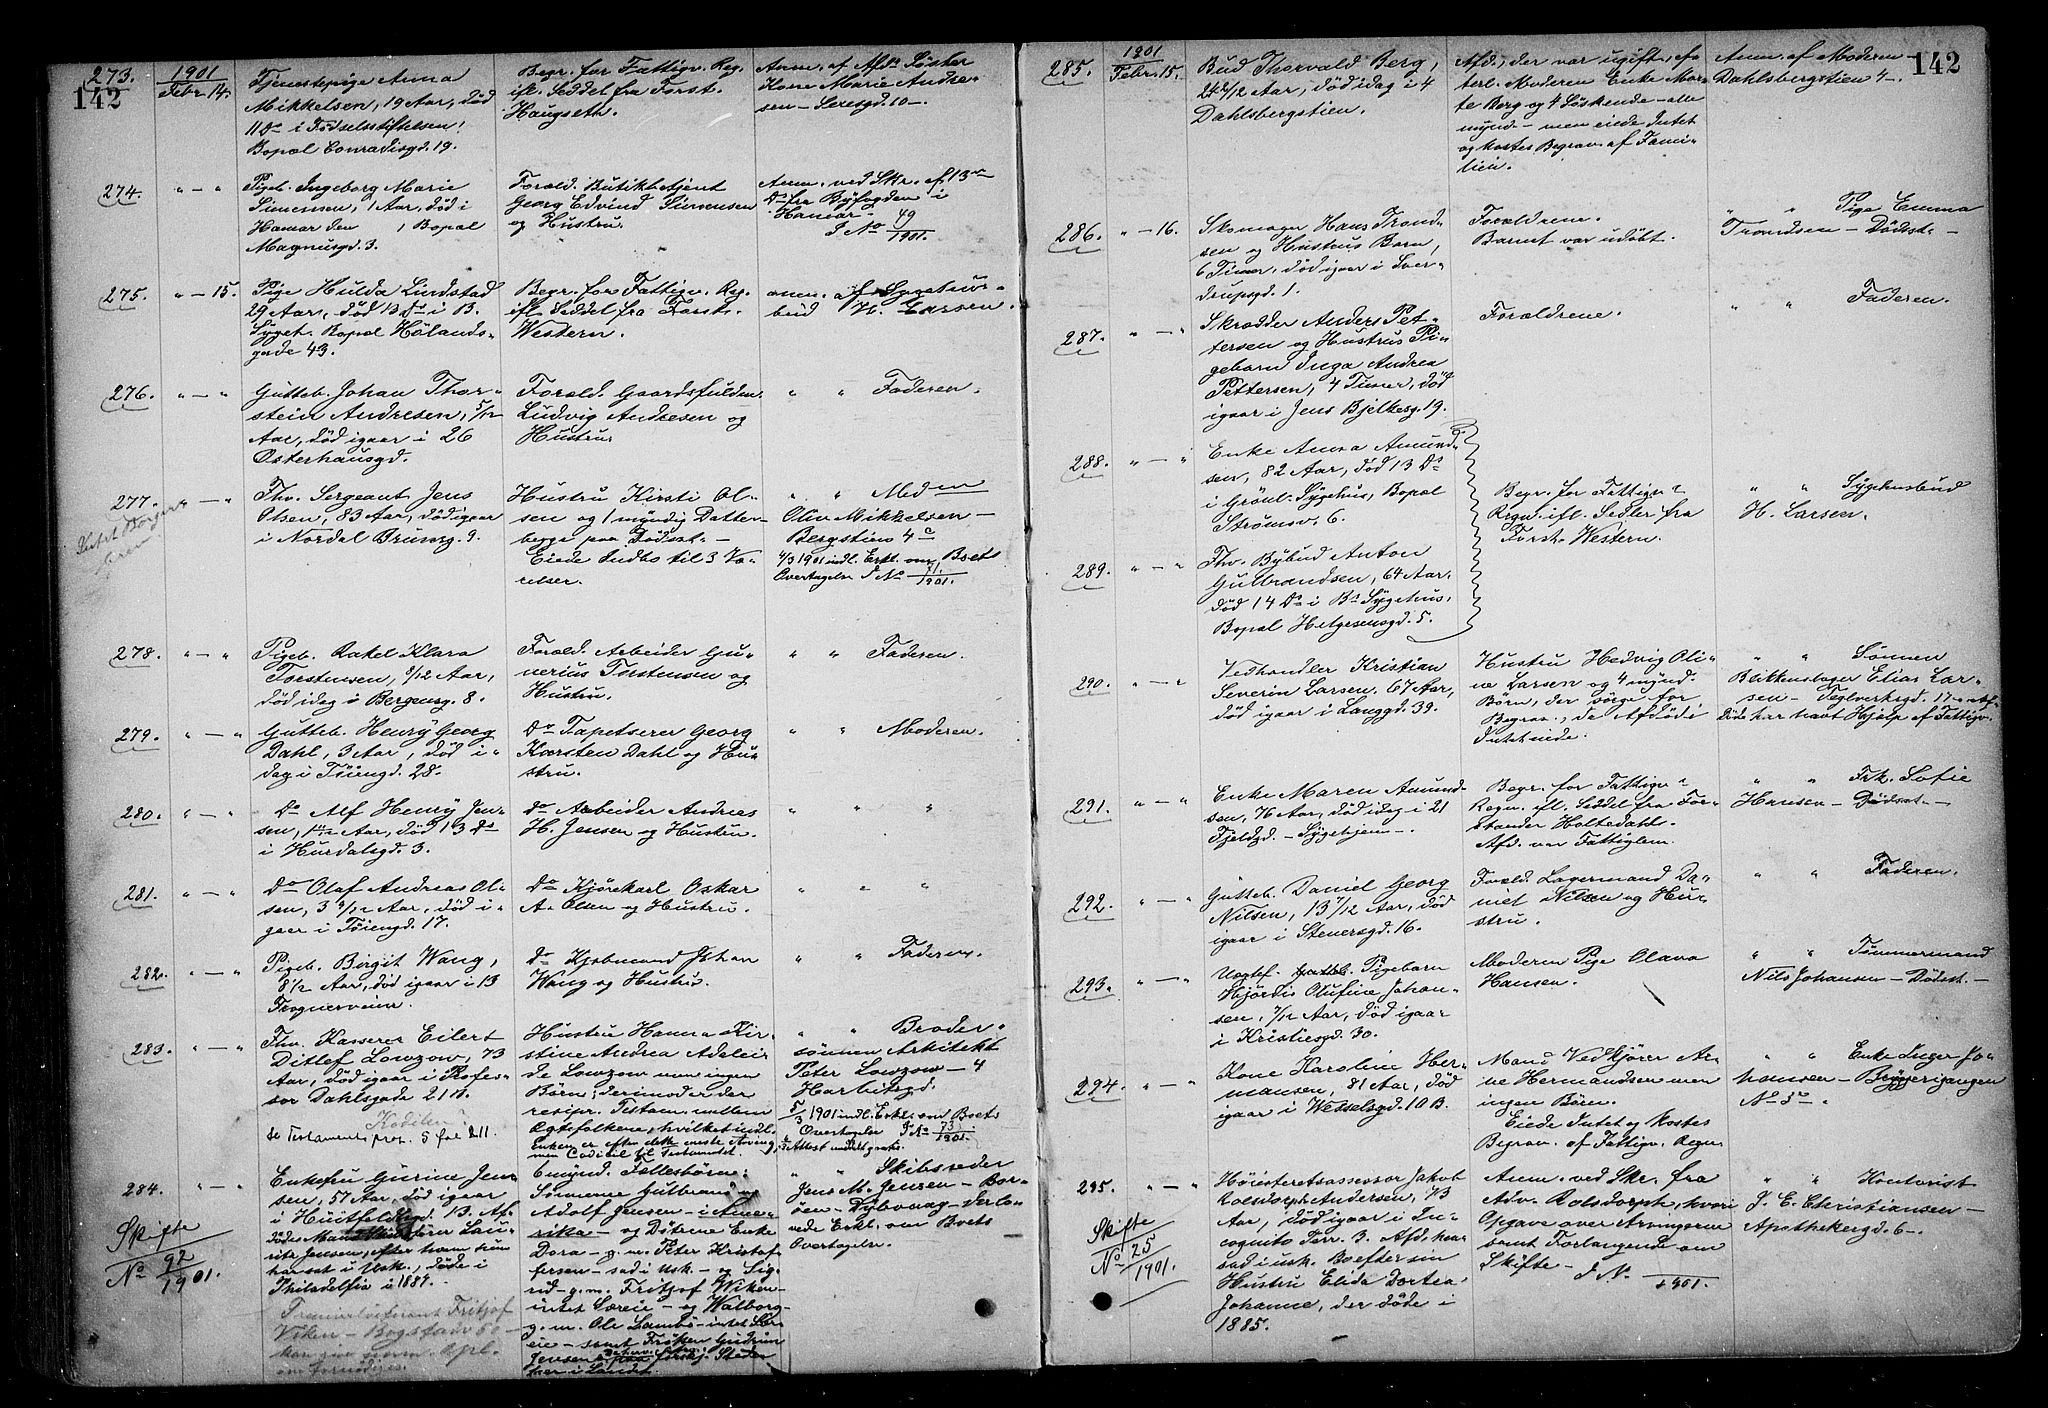 142
273.
1901
Febr. 14.
Tjenestepige Anna
Mikkelsen, 19 Aar, død
11 Ds i Fødselsstiftelsen.
Bopæl Conradisgd. 19.
Begr. for Fattigv. Reg.
ifl. Seddel fra Forst.
Haugseth.
Anm. af Afds Søster
Kone Marie Andre-
sen – 10 –.
274.
" – "
Pigeb. Ingeborg Marie
Simensen, 1 Aar, død i
Hamar den 1 Bopæl
Magnusgd. 3.
Foræld. Butikbetjent
Georg Edvind Simensen
og Hustru.
Anm. ved Skr. af 13de
Ds fra Byfogden i
Hamar.
J No 49/1901.
275.
" – 15.
Pige Hulda Lindstad
29 Aar, død 13 Ds i B.
Syget. Bopæl Hølands-
gade 43.
Begr. for Fattigv. Reg.
ifl. Seddel fra Forst.
Western.
anm. af Sygehus-
bud H. Larsen.
276.
" – "
Gutteb. Johan Thor-
stein Andresen, 5/12
Aar, død igaar i 26
Osterhausgd.
Foræld. Gaardsfuldm.
Ludvig Andresen og
Hustru.
" " Faderen.
277.
" – "
Fhv. Sergeant Jens
Olsen, 83 Aar, død igaar
i Nordal Brunsg. 9.
Hustru Kirsti Ol-
sen og 1 myndig Datter –
begge paa Dødsst. –
Eiede Indbo til 3 Væ-
relser.
" " Madm
Olin Mikkelsen –
Bergstien 4c
4/3 1901 indl. Erkl. om Boets
Overtagelse J No 71/1901.
278.
" – "
Pigeb. Rakel Klara
Torstensen, 8/12 Aar,
død idag i Bergensg. 8.
Foræld. Arbeider Gu-
nerius Torstensen og
Hustru.
" " Faderen.
279.
" – "
Gutteb. Henry Georg
Dahl, 3 Aar, død i-
dag i Tøiengd. 28.
Do Tapetserer Georg
Karsten Dahl og Hu-
stru.
" " Moderen.
280.
" – "
Do Alf Henry Jen-
sen, Aar, død 13 Ds
i Hurdalsgd. 3.
do Arbeider Andreas
H. Jensen og Hustru.
" " "
281.
" – "
Do Olaf Andreas Ol-
sen, 3 Aar, død i-
gaar i Tøiengd. 17.
Do Kjørekarl Oskar
A. Olsen og Hustru.
" " "
282.
" – "
Pigeb. Birgit Wang,
8/12 Aar, død igaar i 13
Frognerveien.
Do Kjøbmand Johan
Wang og Hustru.
" " Faderen.
283.
" – "
Fhv. Kasserer Eilert
Ditlef Lowzow, 73
Aar, død igaar i Profes-
sor Dahlsgade 21
Se Testamentsprot. 5 fol. 211.
Hustru Hanna Kir-
stine Andrea Adelei-
de Lowzow men ingen
Børn; derimod er der
resipr. Testam. mellem
Ægtefolkene, hvilket indl.
" " Broder-
sønnen Arkitekt
Peter Lowzow – 4
Harbitzgd.
5/3 1901 indl. Erkl. om Boets
Overtagelse J No 73/1901.
284.
" – "
Skifte
No 92/1901.
Enkefru Gurine Jen-
sen, 57 Aar, død igaar
i Huitfeldtsgd. 13. Af-
døde Mand Lau-
ritz Jensen, efter hvem hun
hensat i Usk., døde i
Philadelfia i 1887.
Premierløitnant Fritjof
Wiken – Bogstadv 50 –
Emynd. Fællesbørn:
Sønnerne Gulbrand og
Adolf Jensen – i Ame-
rika – og Døtrene Enke
Dora – g. m. Peter Kristof-
fersen – sad i Usk. – og Sig-
rid – g. m. Fritjof Wiken –
intet Særeie – og Walborg –
g. m. Ole Lambø – intet Sær-
eie – samt Frøken Gudrun
Jensen forskj. Steder
her i Landet.
" " Skibsreder
Jens M. Jensen – Bor-
øen – Dybvaag – Verlo-
vede Erkl. om Boets
Overtagelse.
142
285.
1901
Febr. 15.
Bud Thorvald Berg,
Aar, død idag i 4
Dahlsbergstien.
Afd., der var ugift, ef-
terl. Moderen Enke Mar-
te Berg og 4 Søskende – alle
mynd. – men eiede Intet
og kostes Begrav. af Fami-
lien.
Anm. af Moderen
Dahlsbergstien 4 –.
286.
" – 16.
Skomager Hans Trond-
sen og Hustrus Barn,
6 Timer, død igaar i Sver-
drupsgd. 1.
Forældrene.
Barnet var udøbt.
" " Pige Emma
Trondsen – Dødsst. –
287.
" – "
Skrædder Anders Pet-
tersen og Hustrus Pi-
gebarn Inga Andrea
Pettersen, 4 Timer, død
igaar i Jens Bjelkesg. 19.
Forældrene.
" " Faderen.
288.
" – "
Enke Anna Amund-
sen, 82 Aar, død 13 Ds
i Grønl. Sygehus, Bopæl
Strømsv. 6.
Begr. for Fattigv.
Regn. ifl. Sedler fra
Forst. Western.
" " Sygehusbud
H. Larsen.
289.
" – "
Fhv. Bybud Anton
Gulbrandsen, 64 Aar.
død 14 Ds i Bs Sygehus,
Bopæl Helgesensgd. 5.
290.
" – "
Vedhandler Kristian
Severin Larsen, 67 Aar,
død igaar i Langgd. 39.
Hustru Hedvig Oli-
ne Larsen og 4 mynd.
Børn, der sørge for
Begrav., da Afdøde
Intet eiede.
" " Sønnen
Blikkenslager Elias Lar-
sen – Teglverksgd. 17 – Af-
døde har havt Hjælp af Fattigv.
291.
" – "
Enke Maren Amund-
sen, 76 Aar, død idag i 21
Fjeldgd. – Sygehjem –.
Begr. for Fattigv.
Regn. ifl. Seddel fra For-
stander Holtedahl.
Afd. var Fattiglem.
" " Frk. Sofie
Hansen – Dødsst. –
292.
" – "
Gutteb. Daniel Georg
Nilsen, 13 7/12 Aar, død
igaar i Stenersgd. 16.
Foræld. Lagermand Da-
niel Nilsen og Hu-
stru.
" " Faderen.
293.
" – "
Uægtef. Pigebarn
Hjørdis Olufine Johan-
sen, 7/12 Aar, død igaar
i Kristiesgd. 30.
Moderen Pige Olava
Hansen.
" " Tømmermand
Nils Johansen – Dødsst. –
294.
" – "
Kone Karoline Her-
mansen, 81 Aar, død
igaar i Wesselsgd. 10 B.
Mand Vedkjører Ar-
ne Hermandsen men
ingen Børn.
Eiede Intet og kostes
Begrav. af Fattigv. Regn.
" " Enke Inger Jo-
hansen – Bryggerigangen
No 3 .
295.
" – "
Skifte
No 25/1901.
Høiesteretsassessor Jakob
Rolsdorph Andersen, 73
Aar, død igaar i In-
cognito Terr. 3. Afd. hen-
sad i usk. Bo efter sin
Hustru Elida Dortea
Johanne, der døde i
1885.
Anm. ved Skr. fra
Adv. Rolsdorph, hvori
Opgave over Arvingerne
samt Forlangende om
Skifte –
J No /1901.
" " Kontorist
J. E. Christiansen –
Apothekergd. 6 –.